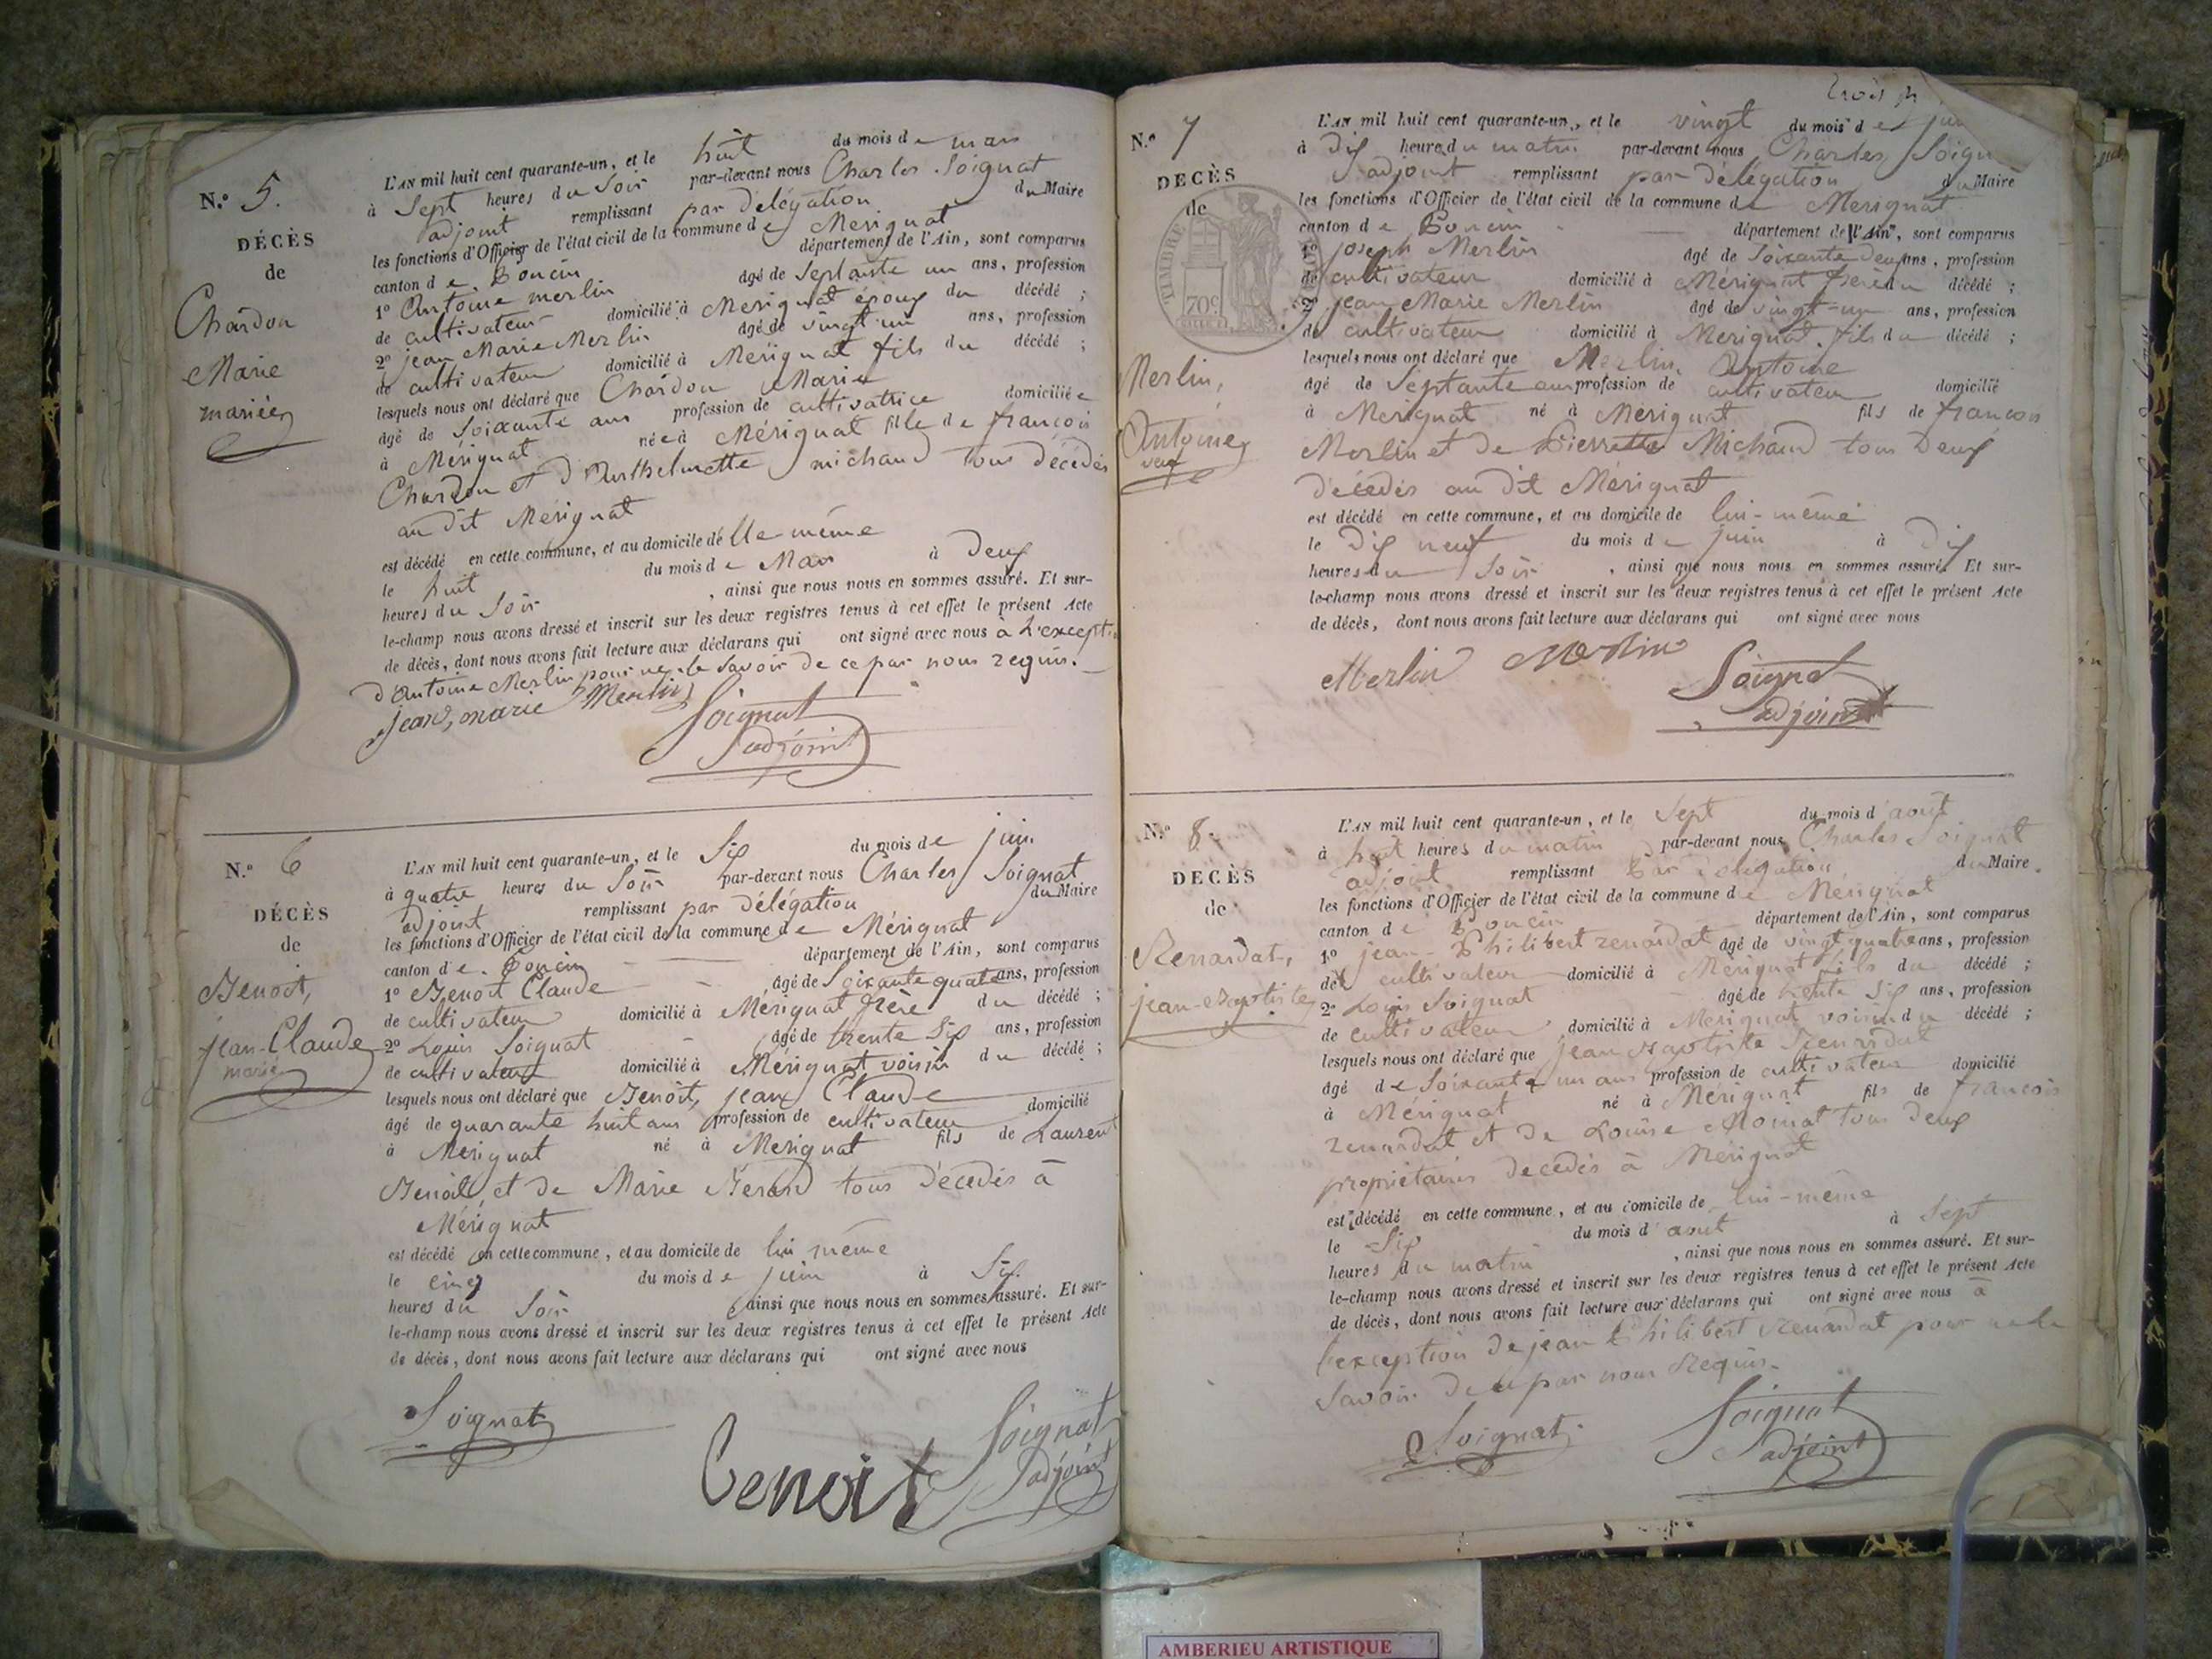 N.º 5.
DÉCÈS
de
Chardon
Marie
mariée
L'AN mil huit cent quarante-un, et le huit du mois de mars
à Sept heures du Soir par-devant nous Charles Soignat
adjoint remplissant par délégation du Maire
les fonctions d'Officier de l'état civil de la commune de Mérignat
canton de Poncin département de l'Ain, sont comparus
1º Antoine merlin âgé de Septante un ans, profession
de cultivateur domicilié à Merignat époux du décédé ;
2º jean Marie Merlin âgé de vingt un ans, profession
de cultivateur domicilié à Mérignat fils du décédé ;
lesquels nous ont déclaré que Chardon Marie
âgé de Soixante ans profession de cultivatrice domiciliée
à Mérignat née à Mérignat fille de françois
Chardon et d'Anthelmette michaud tous décédés
au dit Mérignat
est décédé en cette commune, et au domicile d'elle même
le huit du mois de Mars à Deux
heures du Soir , ainsi que nous nous en sommes assuré. Et sur-
le-champ nous avons dressé et inscrit sur les deux registres tenus à cet effet le présent Acte
de décès, dont nous avons fait lecture aux déclarans qui ont signé avec nous à L'exception
d'Antoine Merlin pour ne le Savoir de ce par nous requis.
jean, marie Merlin
Soignat
adjoint
N.º 6
DÉCÈS
de
Benoit,
jean-Claude
marié
L'AN mil huit cent quarante-un, et le Six du mois de juin
à quatre heures du Soir par-devant nous Charles Soignat
adjoint remplissant par délégation du Maire
les fonctions d'Officier de l'état civil de la commune de Mérignat
canton de Poncin département de l'Ain, sont comparus
1º Benoit Claude âgé de Soixante quatre ans, profession
de cultivateur domicilié à Mérignat frère du décédé ;
2º Louis Soignat âgé de trente Six ans, profession
de cultivateur domicilié à Mérignat voisin du décédé ;
lesquels nous ont déclaré que Benoit, jean Claude
âgé de quarante huit ans profession de cultivateur domicilié
à Merignat né à Merignat fils de Laurent
Benoit, et de Marie tous décédés à
Mérignat
est décédé en cette commune, et au domicile de lui même
le cinq du mois de juin à Six
heures du Soir ainsi que nous nous en sommes assuré. Et sur-
le-champ nous avons dressé et inscrit sur les deux registres tenus à cet effet le présent Acte
de décès, dont nous avons fait lecture aux déclarans qui ont signé avec nous
Soignat
Benoit
Soignat
adjoint
trois
N.º 7
DECÈS
de
TIMBRE
70c
Merlin,
Antoine
veuf
L'AN mil huit cent quarante-un, et le vingt du mois de
à Dix heures du matin par-devant nous Charles
adjoint remplissant par délégation du Maire
les fonctions d'Officier de l'état civil de la commune de Merignat
canton de Poncin département de l'Ain, sont comparus
1º joseph Merlin âgé de Soixante Deux ans, profession
de cultivateur domicilié à Mérignat frère du décédé ;
2º jean Marie Merlin âgé de vingt-un ans, profession
de cultivateur domicilié à Merignat. fils du décédé ;
lesquels nous ont déclaré que Merlin, Antoine
âgé de Septante ans profession de cultivateur domicilié
à Merignat né à Merignat fils de françois
Merlin et de Pierrette Michaud tous Deux
décédés au dit Mérignat
est décédé en cette commune, et au domicile de lui-même
le Dix neuf du mois de juin à Dix
heures du Soir , ainsi que nous nous en sommes assuré. Et sur-
le-champ nous avons dressé et inscrit sur les deux registres tenus à cet effet le présent Acte
de décès, dont nous avons fait lecture aux déclarans qui ont signé avec nous
Merlin Merlin
Soignat
adjoint
N.º 8.
DECÈS
de
Renardat,
jean-Baptiste
L'AN mil huit cent quarante-un, et le Sept du mois d'août
à huit heures du matin par-devant nous Charles Soignat
adjoint remplissant Par délégation du Maire
les fonctions d'Officier de l'état civil de la commune de Mérignat
canton de Poncin département de l'Ain, sont comparus
1º jean-Philibert renardat âgé de vingt quatre ans, profession
de cultivateur domicilié à Mérignat fils du décédé ;
2º Louis Soignat âgé de trente Six ans, profession
de cultivateur domicilié à Merignat voisin du décédé ;
lesquels nous ont déclaré que jean Baptiste Renardat
âgé de Soixante un ans profession de cultivateur domicilié
à Mérignat né à Mérignat fils de françois
renardat et de Louise Moinat tous Deux
propriétaires décédés à Mérignat
est décédé en cette commune, et au domicile de lui-même
le Six du mois d'aout à Sept
heures du matin , ainsi que nous nous en sommes assuré. Et sur-
le-champ nous avons dressé et inscrit sur les deux registres tenus à cet effet le présent Acte
de décès, dont nous avons fait lecture aux déclarans qui ont signé avec nous à
l'exception de jean Philibert renardat pour ne le
Savoir. De ce par nous Requis.
Soignat
Soignat
adjoint
AMBERIEU ARTISTIQUE